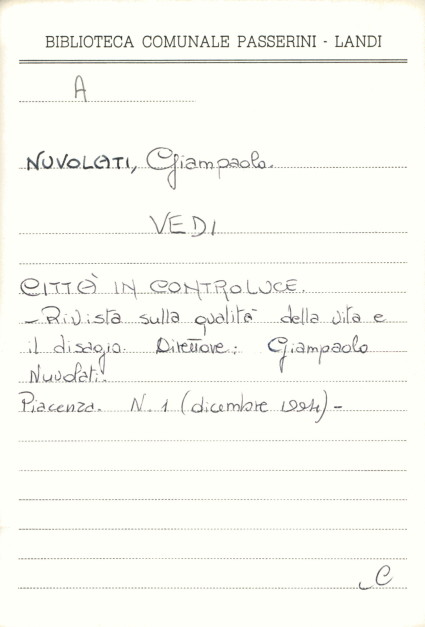 BIBLIOTECA COMUNALE PASSERINI - LANDI
A
NUVOLATI, Giampaolo.
VEDI
CITTÀ IN CONTROLUCE.
- Rivista sulla qualità della vita e
il disagio. Direttore: Giampaolo
Nuvolati.
Piacenza. N. 1 (dicembre 1994) -
C